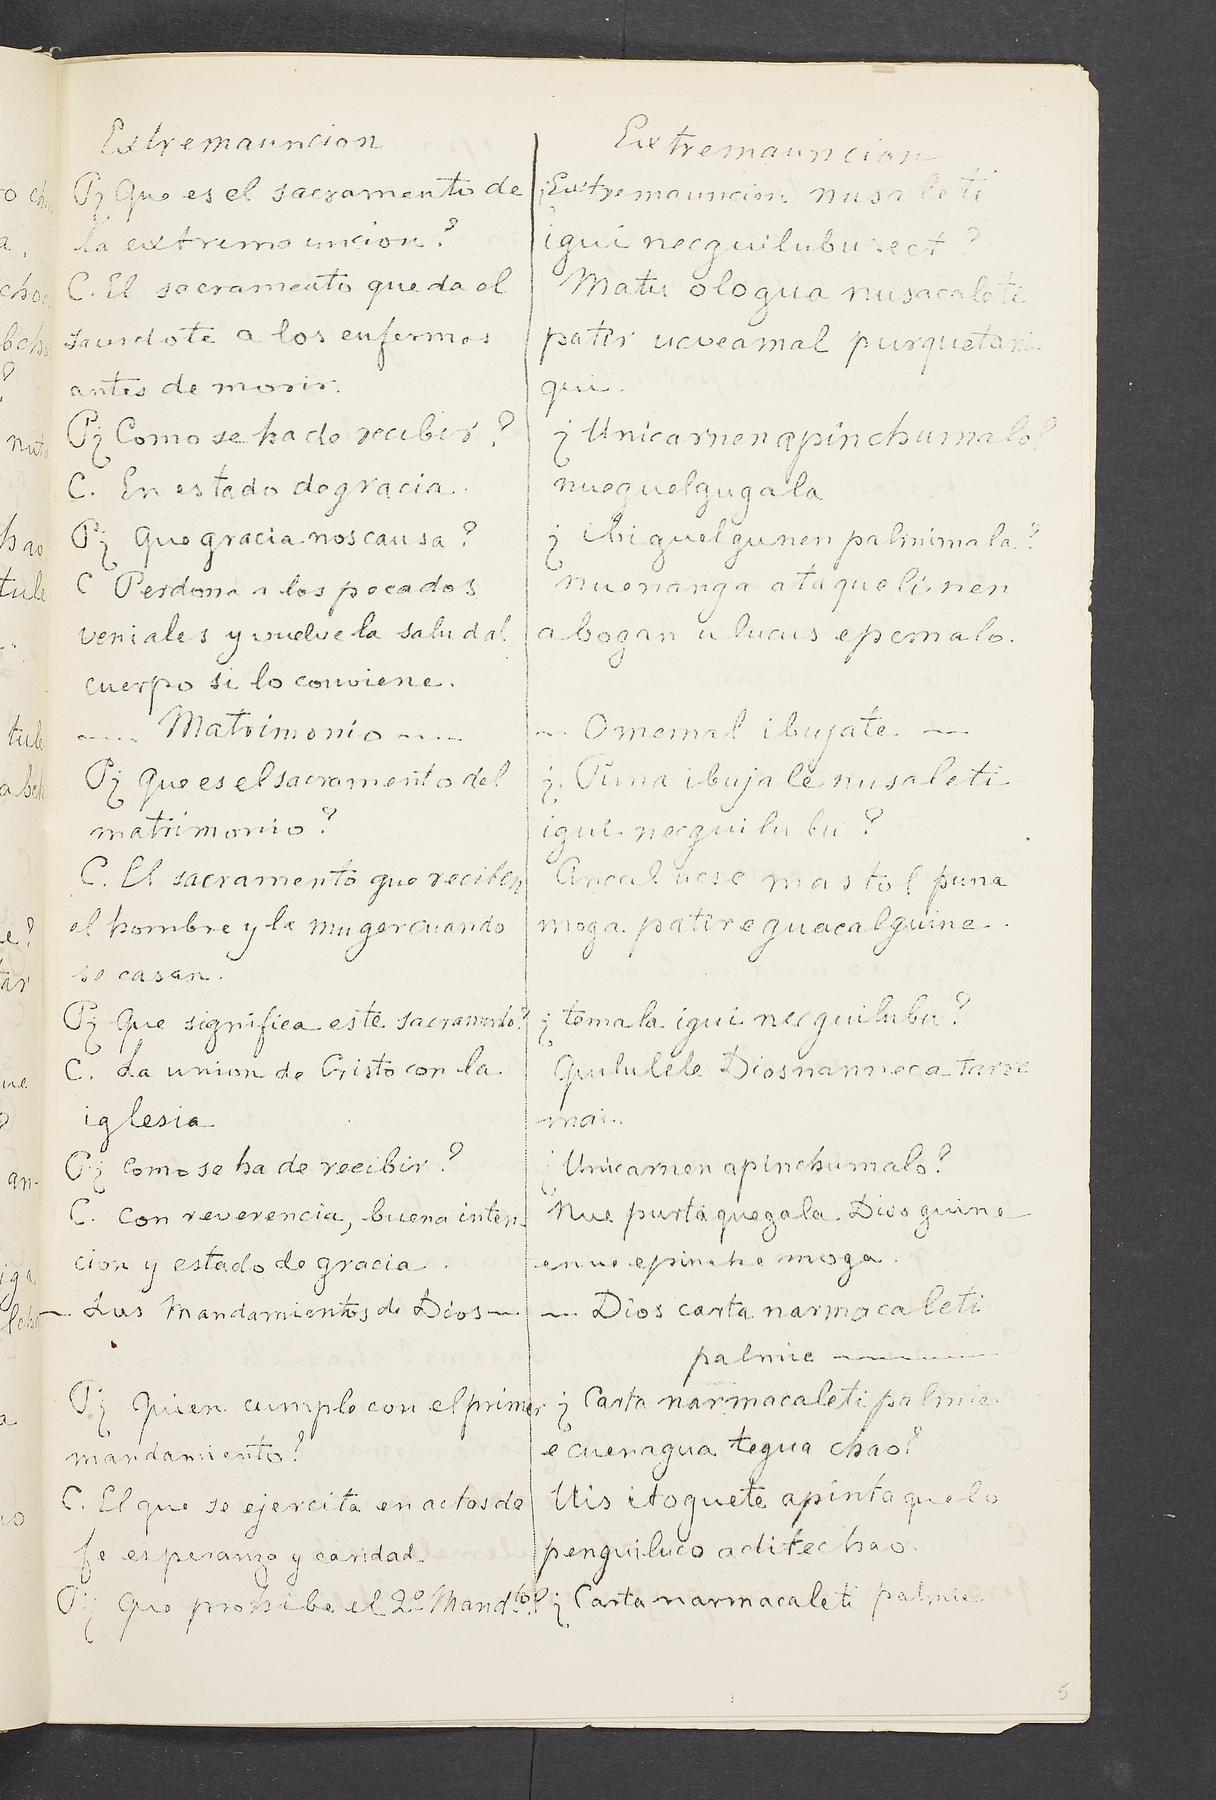 Extremauncion
P¿ Que es el sacramento de
la extrema uncion?
C. El sacramento que da el
sacerdote a los enfermos
antes de morir.
P¿ Como se ha de recibir?
C. En estado de gracia.
P¿ Que gracia nos causa?
C Perdona a los pecados
veniales y vuelve la salud al
cuerpo si lo conviene.
Matrimonio
P¿ Que es el sacramento del
matrimonio?
C. El sacramento que reciben
el hombre y la muger cuando
se casan.
P¿ Que significa este sacramento?
C. La union de Cristo con la
iglesia
P¿ Como se ha de recibir?
C. Con reverencia, buena inten-
cion y estado de gracia.
Los Mandamientos de Dios
P¿ Quien cumple con el primer
mandamiento?
C. El que se ejercita en actos de
fe esperanza y caridad.
P¿ Que prohibe el 2º Mandto?
Extremauncion
¿Extremauncion nusaleti
igui necguilubu
Matu ologua nusacaleti
patir ucveamal
qui.
¿ Unicarnen apinchumalo?
nueguelgugala
¿ Ibiguelgunen palnimala?
nuenanga ataquelinen
abogan ulucus epemalo.
Omemal ibujate.
¿. Puna ibujale nusaleti
igui necguilubu?
Aneal uese mastol puna
moga patireguacalguine.
¿ temala igui necguilubu?
Qululele Diosnanneca tarre
mai.
¿ Unicarnen apinchumalo?
Nue purtaquegala. Dios guine
enue epinche moga.
Dios carta narmacaleti
palmie
¿ Carta narmacaleti palmie
ecuenagua tegua chao?
Uis itoguete apintaquelo
penguiluco aditechao.
¿ Carta narmacaleti palmie
5